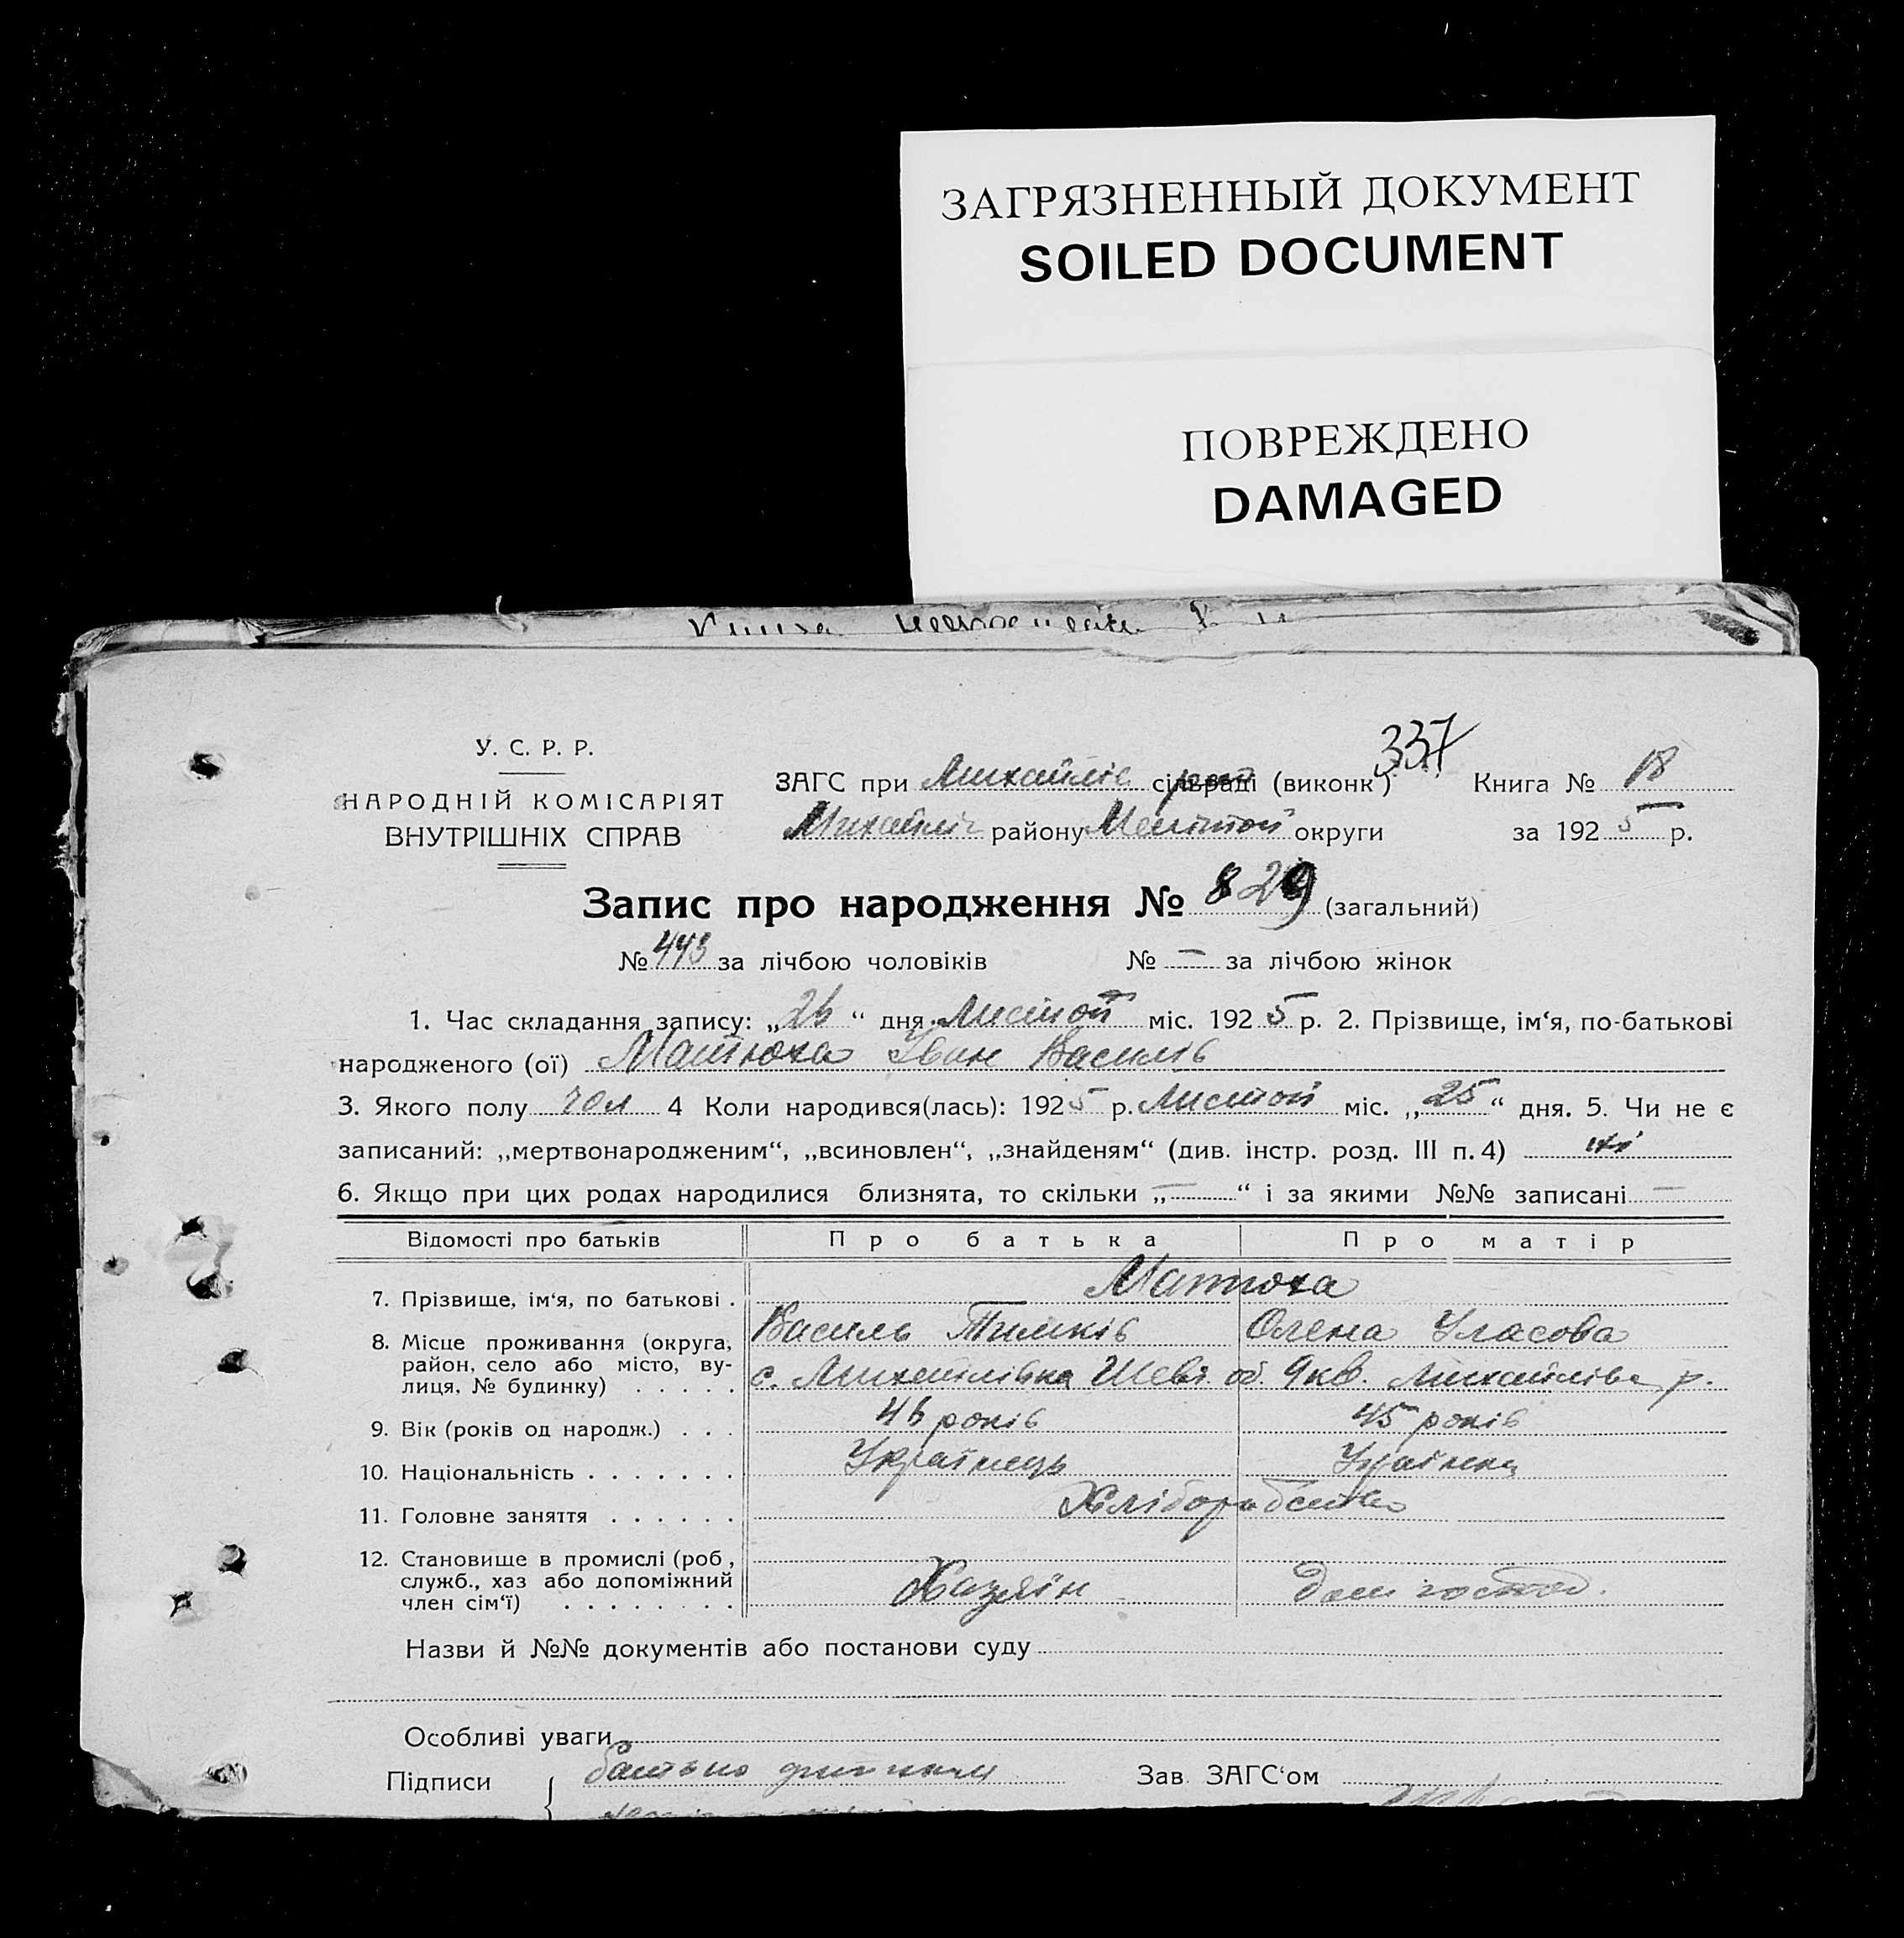 ЗАГРЯЗНЕННЫЙ ДОКУМЕНТ
SOILED DOCUMENT
ПОВРЕЖДЕНО
DAMAGED
337
У. С. Р. Р.
НАРОДНІЙ КОМІСАРІЯТ
ВНУТРІШНІХ СПРАВ
ЗАГС при Михайлів сільраді (виконк) Книга № 18
Михайлів району Мелітоп округи за 1925 р.
Запис про народження № 829 (загальний)
№ 443 за лічбою чоловіків № — за лічбою жінок
1. Час складання запису: „26“ дня Листоп міс. 1925 р. 2. Прізвище, ім‘я, по-батькові
народженого (ої) Матюха Іван Василів
3. Якого полу чол 4 Коли народився(лась): 1925 р. Листоп міс. „25“ дня. 5. Чи не є
записаний: „мертвонародженим“, „всиновлен“, „знайденям“ (див. інстр. розд. III п. 4) ні
6. Якщо при цих родах народилися близнята, то скільки „—“ і за якими №№ записані —
Відомості про батьків Про батька Про матір
Матюха
7. Прізвище, ім‘я, по батькові .
Василь Тимків Олена Уласова
8. Місце проживання (округа,
район, село або місто, ву-
лиця, № будинку) . . . . .
с. Михайлівка Шевч. об. 9 кв. Михайлівс р.
9. Вік (років од народж.) . . . 46 років 45 років
10. Національність . . . . . . . Українець Українка
11. Головне заняття . . . . . . Хліборобство
12. Становище в промислі (роб,
служб., хаз або допоміжний
член сім‘ї) . . . . . . . .
Хазяїн Дом господ.
Назви й №№ документів або постанови суду
Особливі уваги
Підписи батько дитини Зав. ЗАГС‘ом